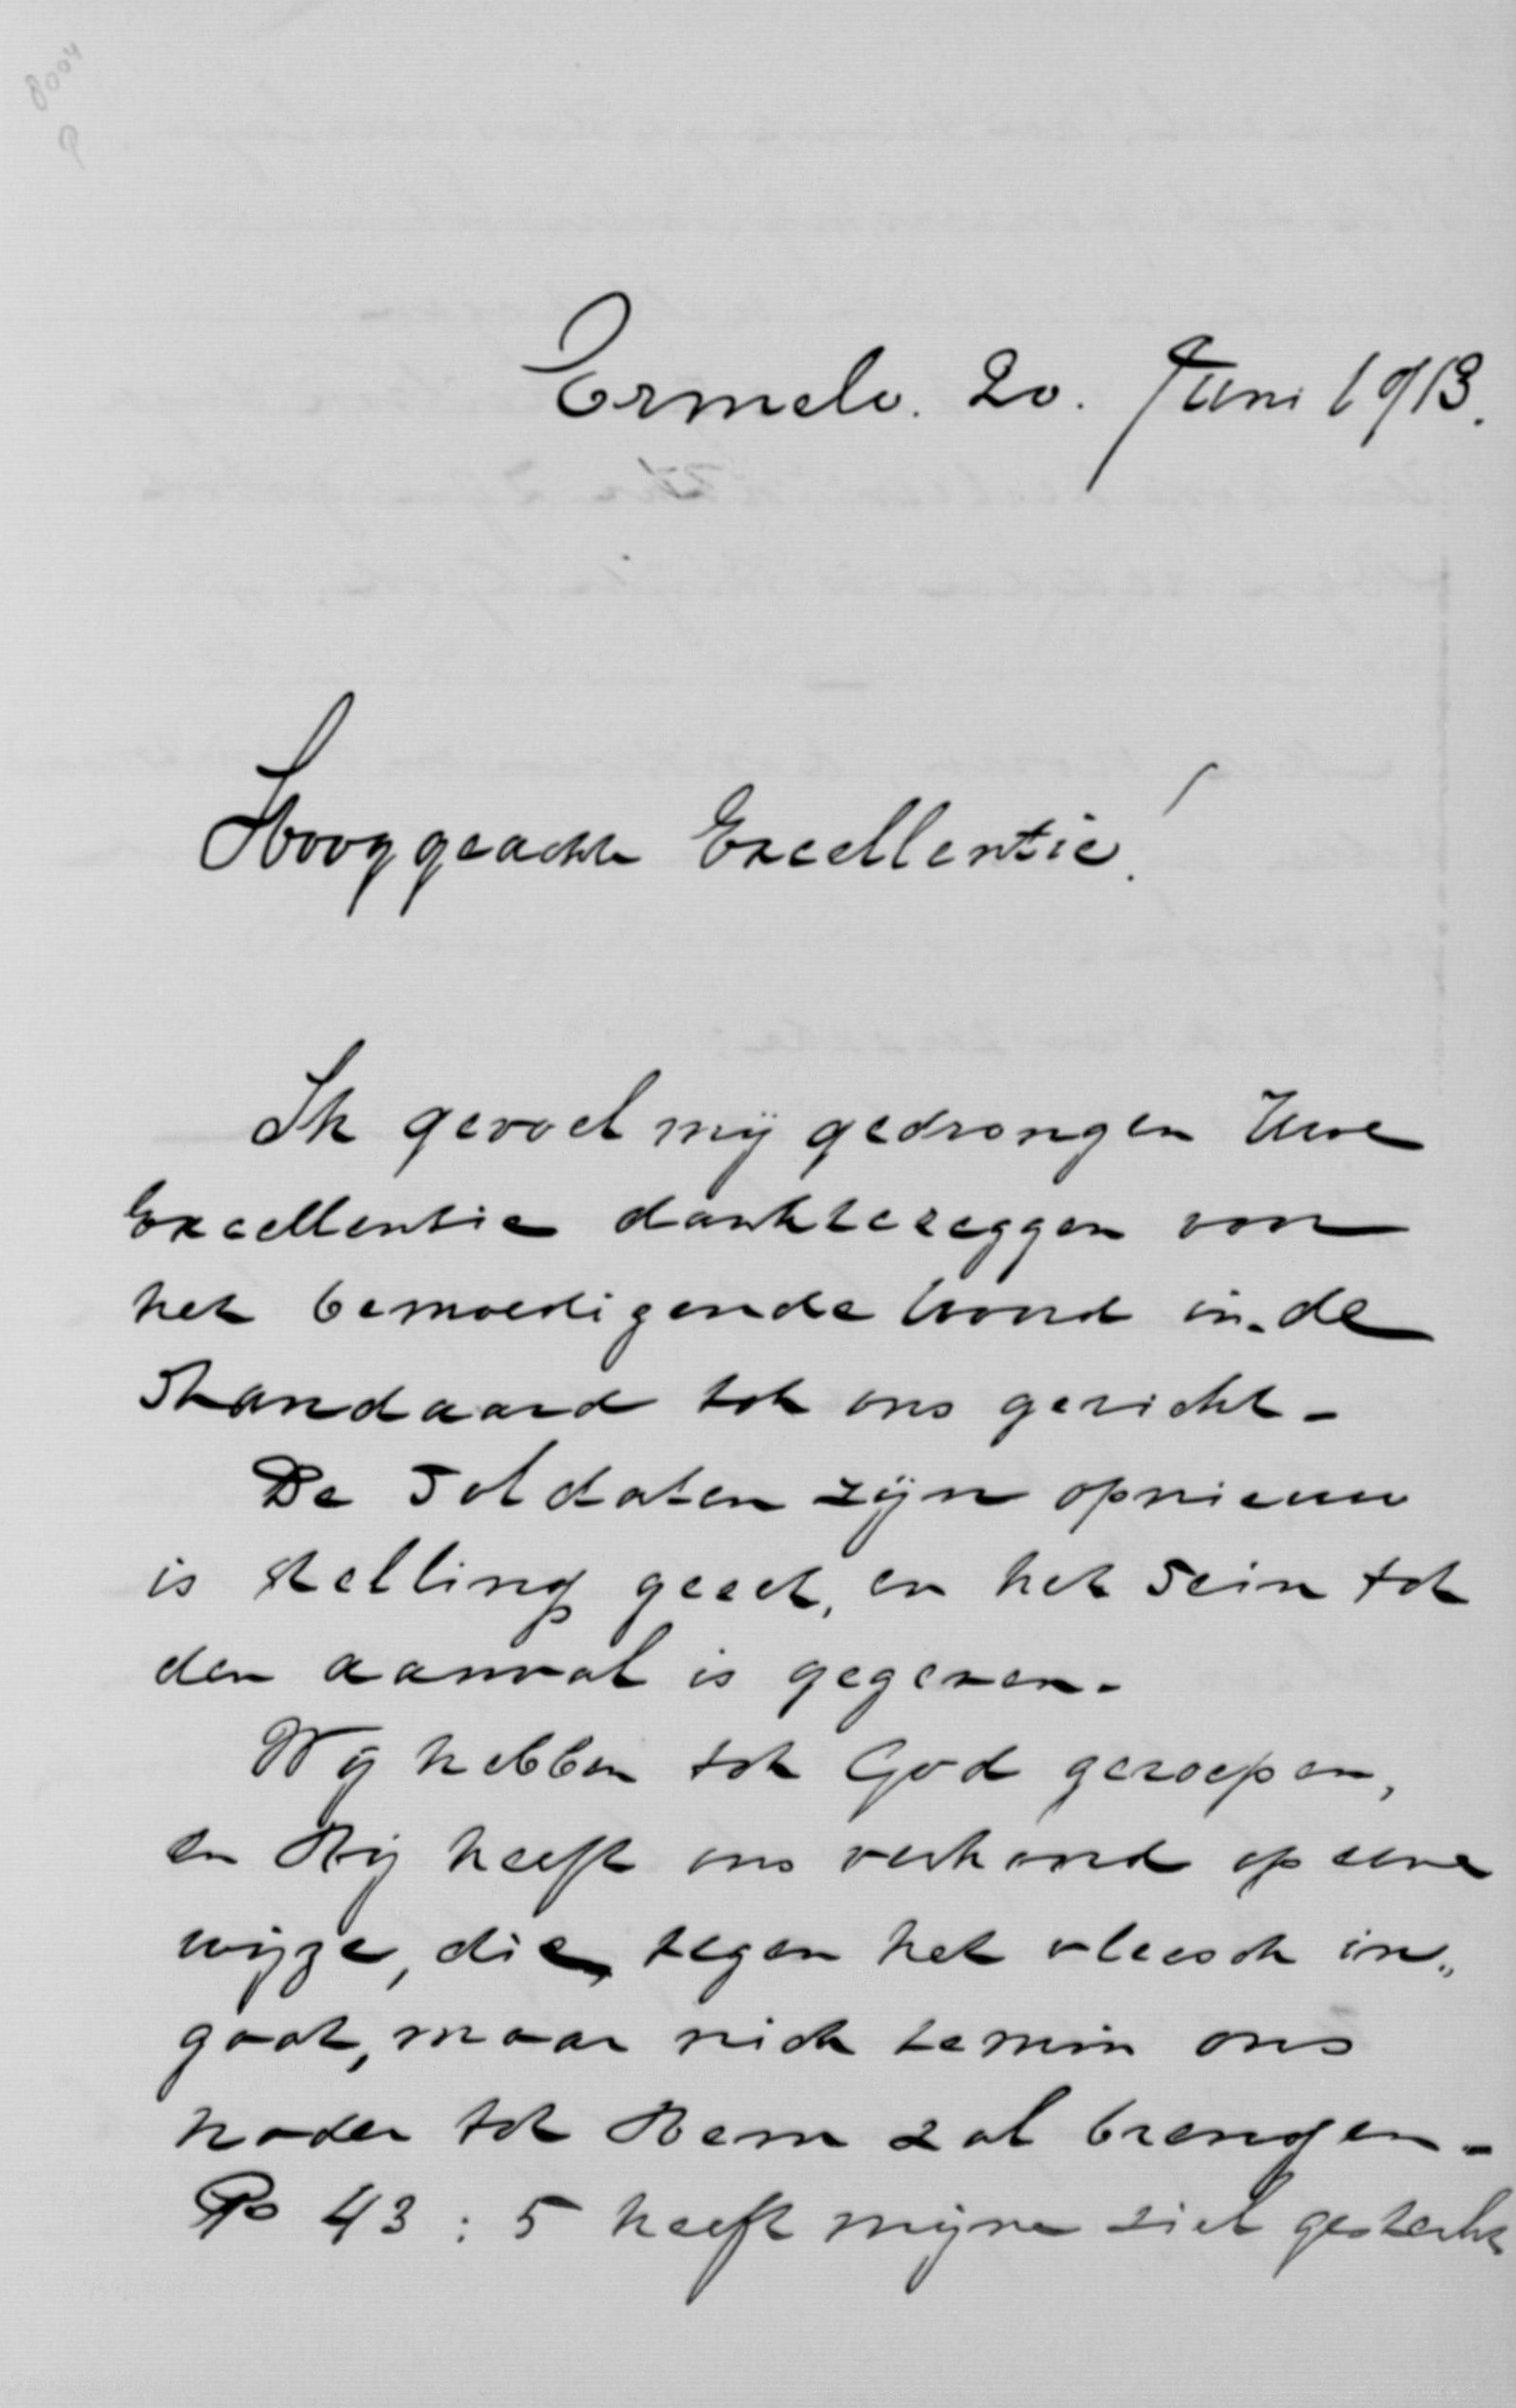 8004
Ermelo. 20. Juni 1913.
Hooggeachte Excellentie!
Ik gevoel mij gedrongen Uwe
Excellentie danktezeggen voor
het bemoedigende woord in de
Standaard tot ons gericht.
De Soldaten zijn opnieuw
is stelling gezet, en het sein tot
den aanval is gegeven.
Wij hebben tot God geroepen,
en Hij heeft ons verhoord op eene
wijze, die, tegen het vleesch in„
gaat, maar niet temin ons
nader tot Hem zal brengen.
Ps 43 : 5 heeft mijne ziel gesterkt